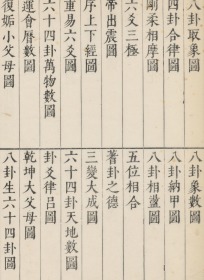 八卦取象圖
四卦合律圖
剛柔相摩圖
六爻三極
帝出震圖
序上下經圖
重易六爻圖
六十四卦萬物數圖
運會曆數圖
復姤小父母圖
八卦象數圖
八卦納甲圖
八卦相盪圖
五位相合
蓍卦之德
三變大成圖
六十四卦天地數圖
卦爻律呂圖
乾坤大父母圖
八卦生六十四卦圖